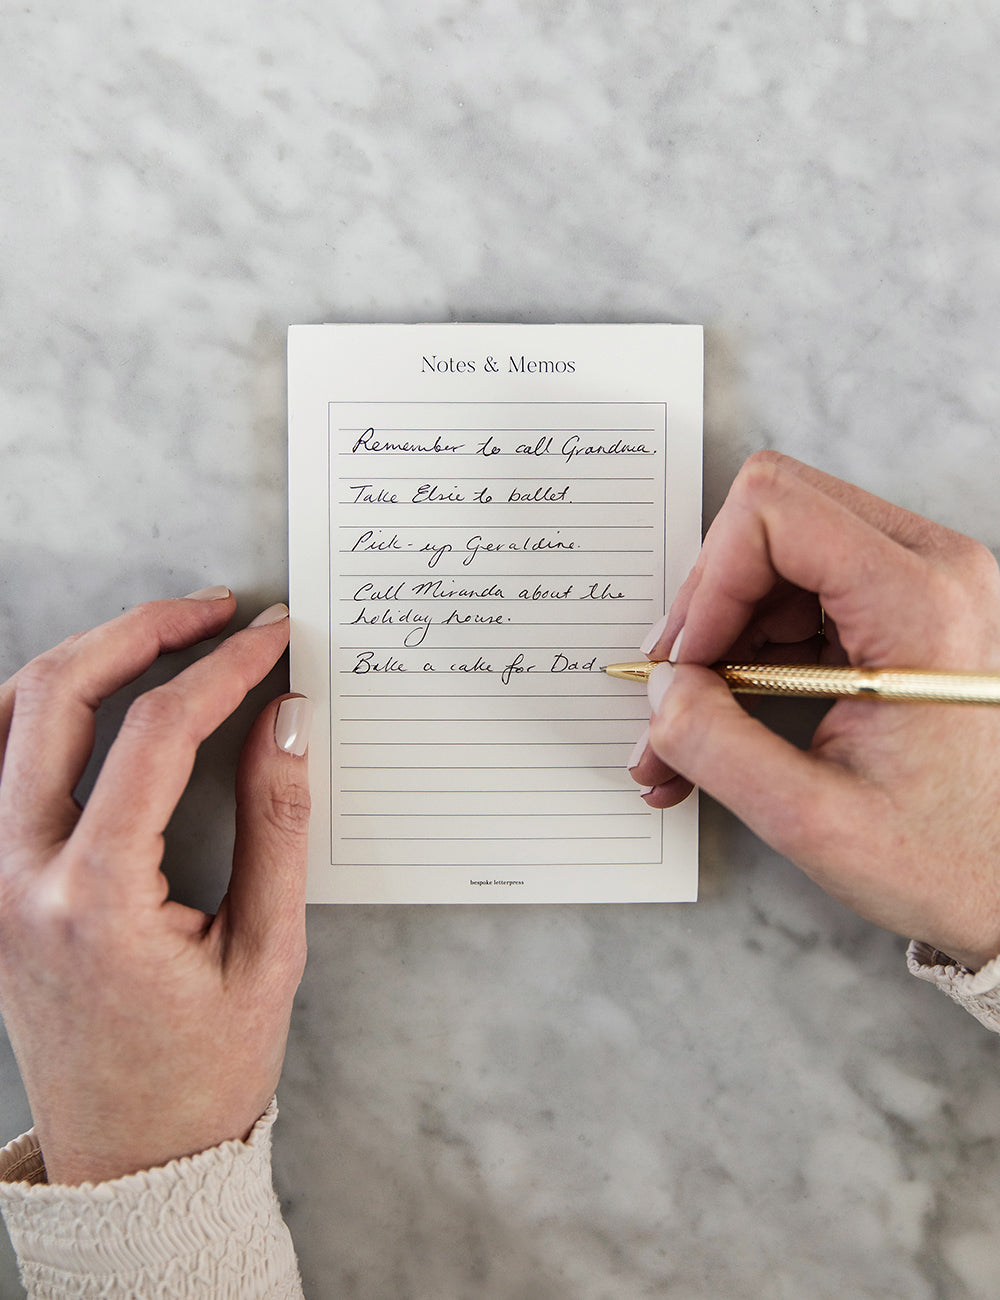 Notes & Memos
Remember to call Grandma.
Take Elsie to ballet.
Pick-up Geraldine.
Call Miranda about the
holiday house.
Bake a cake for Dad
bespoke letterpress